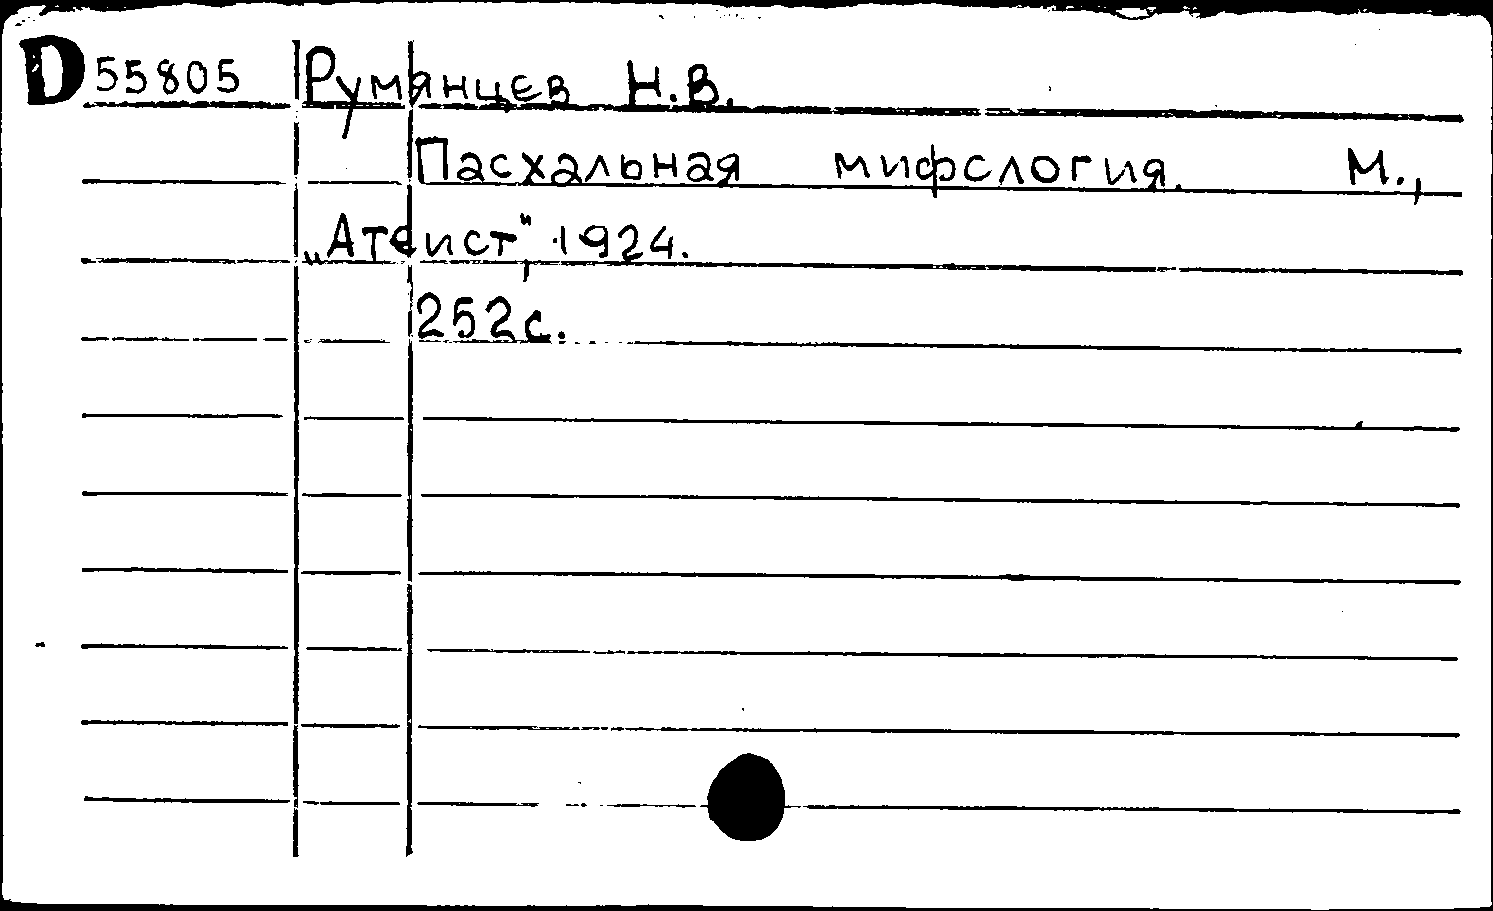 D55805 Румянцев Н.В.
Пасхальная мифология. М.,
„Атеист", 1924.
252с.